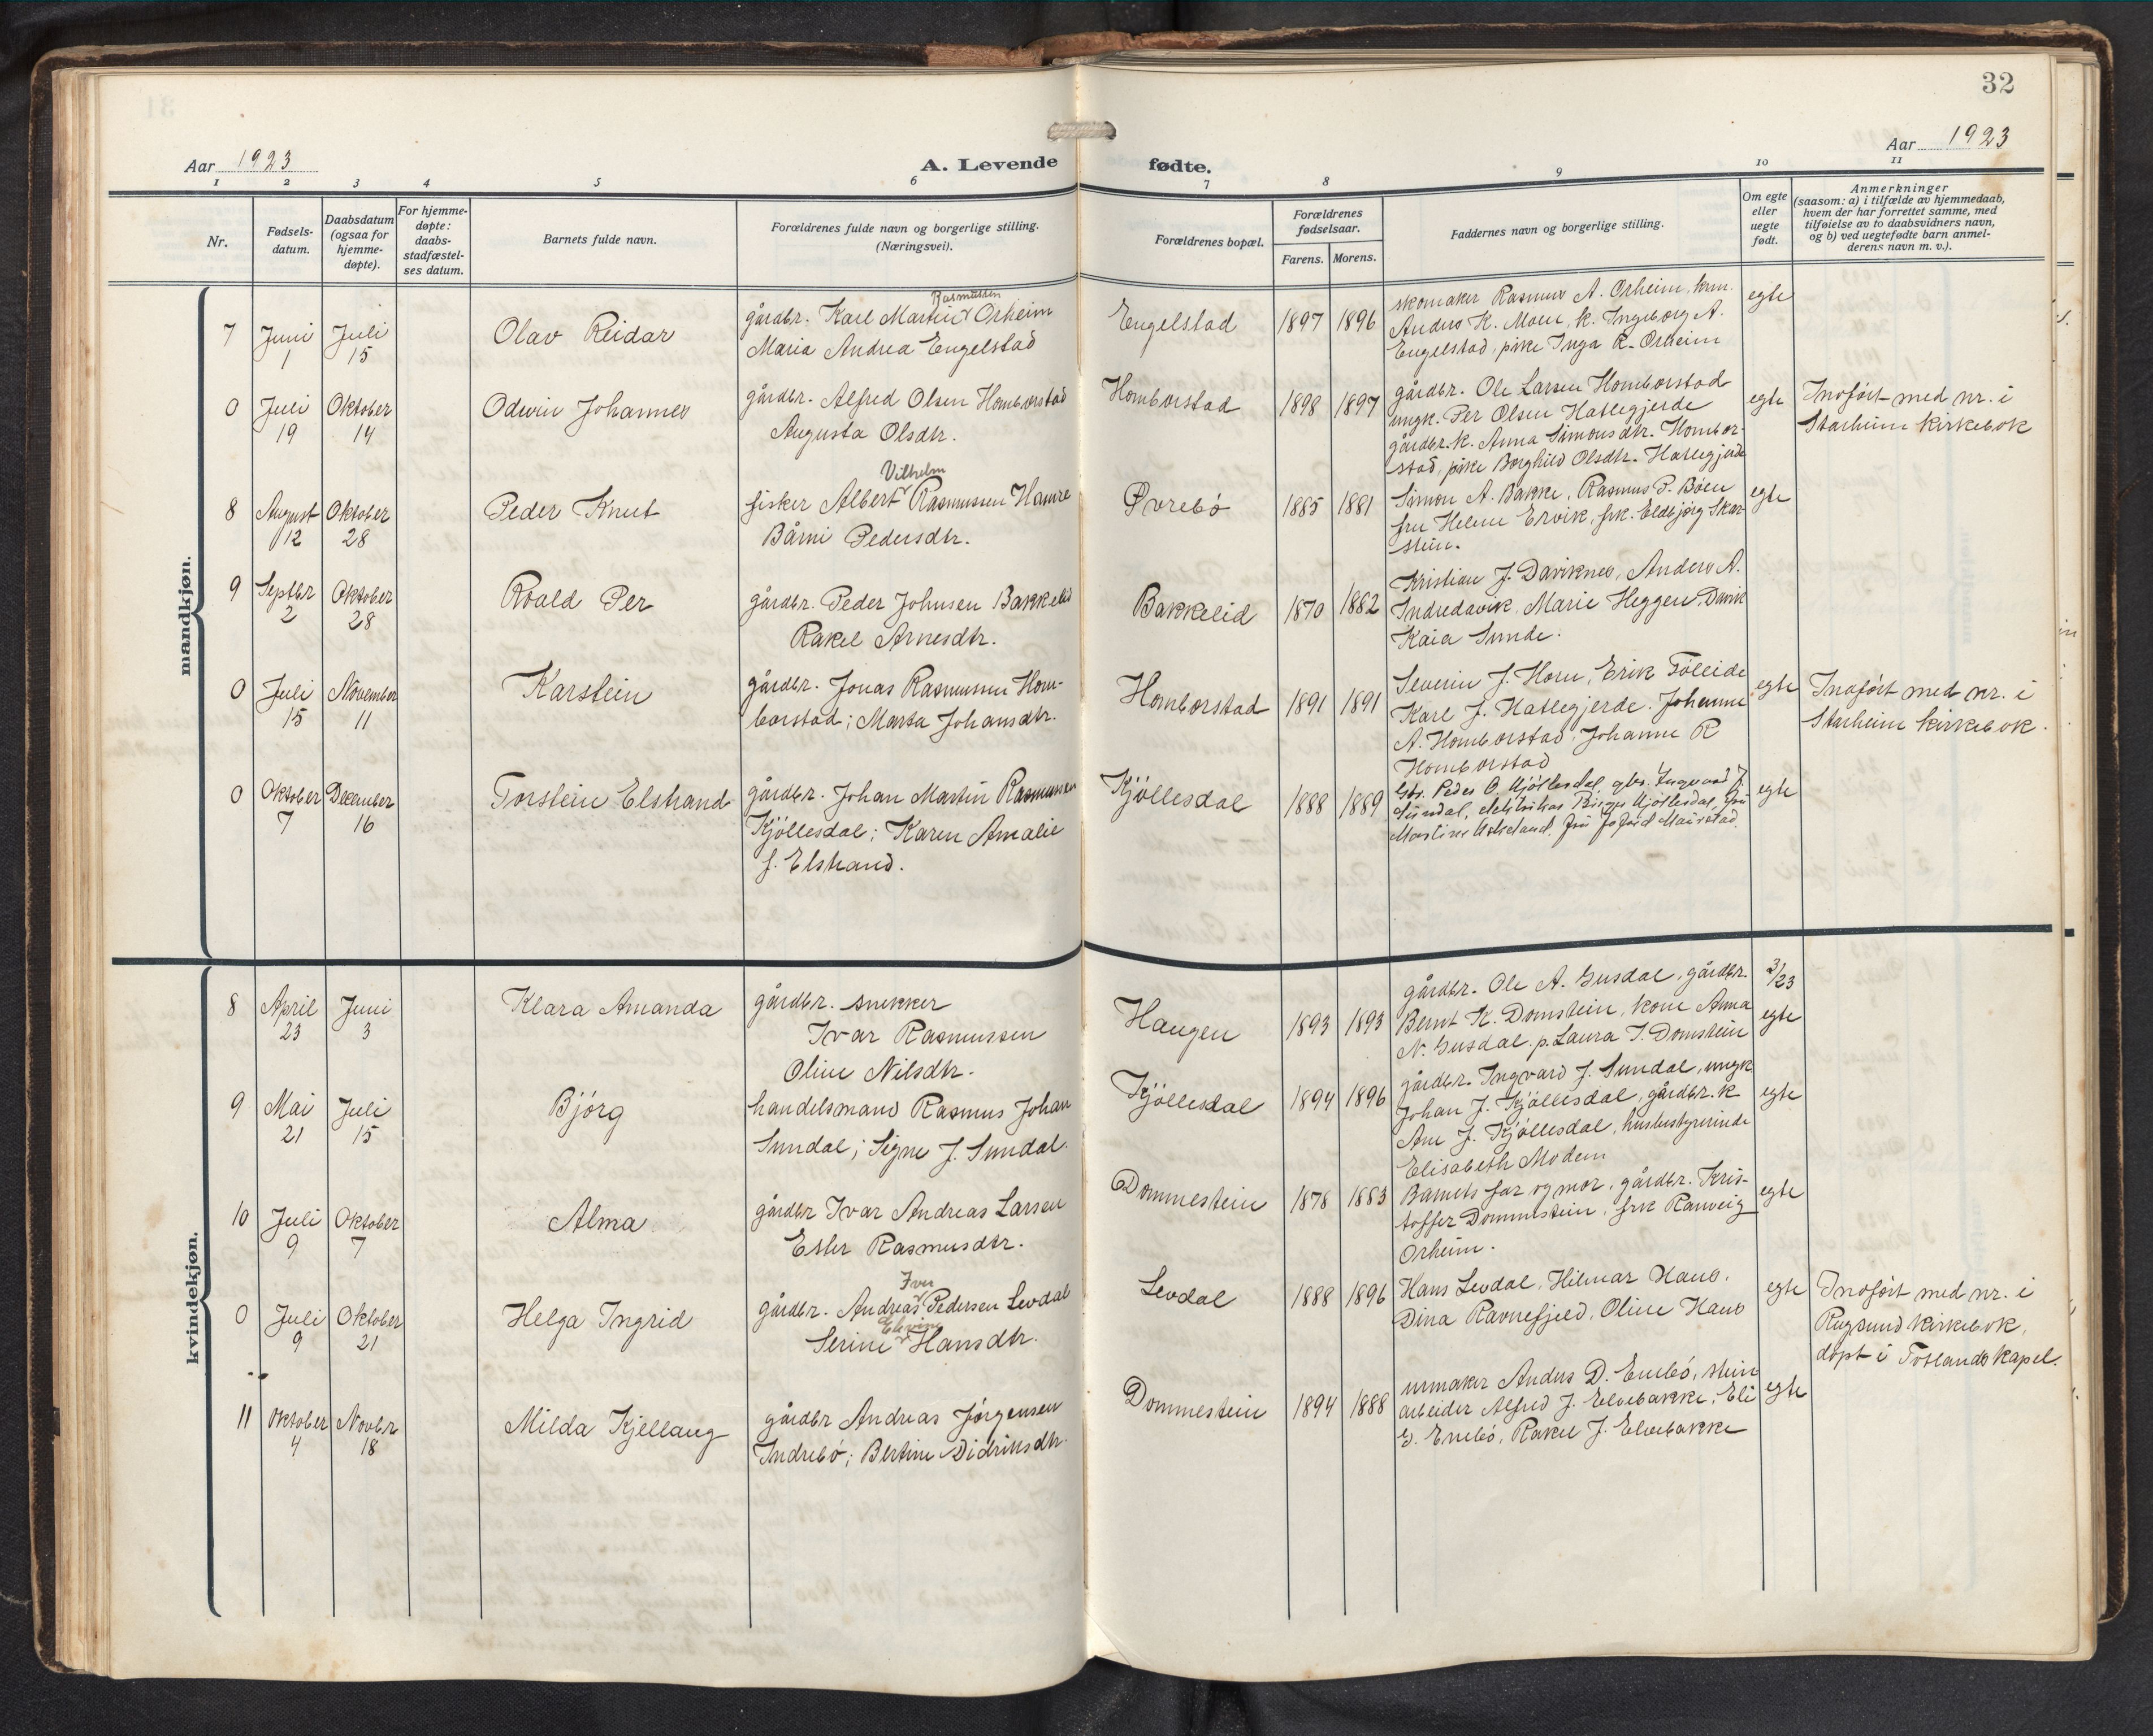 32
Aar 1923
A. Levende fødte.
Aar 1923
1 2 3 4 5 6 7 8 9 10 11
Nr.
Fødsels-
datum.
Daabsdatum
(ogsaa for
hjemme-
døpte).
For hjemme-
døpte:
daabs-
stadfæstel-
ses datum.
Barnets fulde navn.
Forældrenes fulde navn og borgerlige stilling.
(Næringsvei).
Forældrenes bopæl.
Forældrenes
fødselsaar.
Farens. Morens.
Faddernes navn og borgerlige stilling.
Om egte
eller
uegte
født.
Anmerkninger
(saasom: a) i tilfælde av hjemmedaab,
hvem der har forrettet samme, med
tilføielse av to daabsvidners navn,
og b) ved uegtefødte barn anmel-
derens navn m. v.).
mandkjøn.
7
Juni
1
Juli
15
Olav Reidar
Rasmussen
gårdbr. Karl Martin Orheim
Maria Andrea Engelstad
Engelstad
1897 1896
skomaker Rasmus A. Orheim, krm.
Anders K. Moen, k. Ingeborg A.
Engelstad, pike Inga R. Orheim
egte
0
Juli
19
Oktober
14
Odwin Johannes
gårdbr. Alfred Olsen Homborstad
Augusta Olsdtr.
Homborstad
1898 1897
gårdbr. Ole Larsen Homborstad
ungk. Per Olsen Hatlegjerde
gårdbr. k. Anna Simonsdtr. Hombor-
stad, pike Borghild Olsdtr. Hatlegjerde
egte
Indført med nr. i
Starheim kirkebok
8
August
12
Oktober
28
Peder Knut
Vilhelm
fisker Albert Rasmussen Hamre
Bårni Pedersdtr.
Øvrebö
1885 1881
Simon A. Bakke, Rasmus P. Böen
fru Helene Ervik, frk. Eldbjørg Skar-
stein.
egte
9
Septbr
2
Oktober
28
Roald Per
gårdbr. Peder Johnsen Bakkelid
Rakel Arnesdtr.
Bakkelid
1870 1882
Kristian J. Daviknes, Anders A.
Indredavik, Marie Heggen, Davik
Kaia Sunde.
0
Juli
15
November
11
Karstein
gårdbr. Jonas Rasmussen Hom-
borstad; Marta Johansdtr.
Homborstad
1891 1891
Severin J. Horn, Erik Tölleide
Karl J. Hatlegjerde. Johanne
A. Homborstad, Johanne R
Homborstad
egte
Indført med nr. i
Starheim kirkebok.
0
Oktober
7
December
16
Torstein Elstrand
gårdbr. Johan Martin Rasmussen
Kjöllesdal; Karen Amalie
f. Elstrand.
Kjöllesdal
1888 1889
Gbr. Peder O. Kjöllesdal, gbr. Ingvard J.
Sundal, Birger Kjöllesdal, fru
fru Maurstad.
egte
kvindekjøn.
8
April
23
Juni
3
Klara Amanda
gårdbr. snekker
Ivar Rasmussen
Oline Nilsdtr.
Haugen
1893 1893
gårdbr. Ole A. Gusdal, gårdbr.
Bernt K. Domstein, kone Anna
N. Gusdal. p. Laura I. Domstein
3/23
egte
9
Mai
21
Juli
15
Bjørg
handelsmand Rasmus Johan
Sundal; Signe J. Sundal.
Kjöllesdal
1894 1896
gårdbr. Ingvard J. Sundal, ungk
Johan J. Kjöllesdal, gårdbr. k
Ane J. Kjöllesdal, husbestyrerinde
Elisabeth Modem
egte
10
Juli
9
Oktober
7
Alma
gårdbr Ivar Andreas Larsen
Ester Rasmusdtr.
Dommestein
1878 1883
Barnets far og mor, gårdbr. Kris-
toffer Dommestein, frk Ranveig
Orheim.
egte
0
Juli
9
Oktober
21
Helga Ingrid
Iver
gårdbr. Andreas Pedersen Levdal
Elvine
Serine Hansdtr.
Levdal
1888 1896
Hans Levdal, Hilmar Haus.
Dina Ravnefjeld, Oline Haus
egte
Indført med nr. i
Rugsund kirkebok,
döpt i Totlands kapel.
11
Oktober
4
Novbr
18
Milda Kjellaug
gårdbr Andreas Jørgensen
Indrebø; Bertine Didriksdtr.
Dommestein
1894 1888
urmaker Anders D. Enebö, stein
arbeider Alfred J. Elvebakke, Eli
D. Enebö, Rakel J. Elvebakke
egte